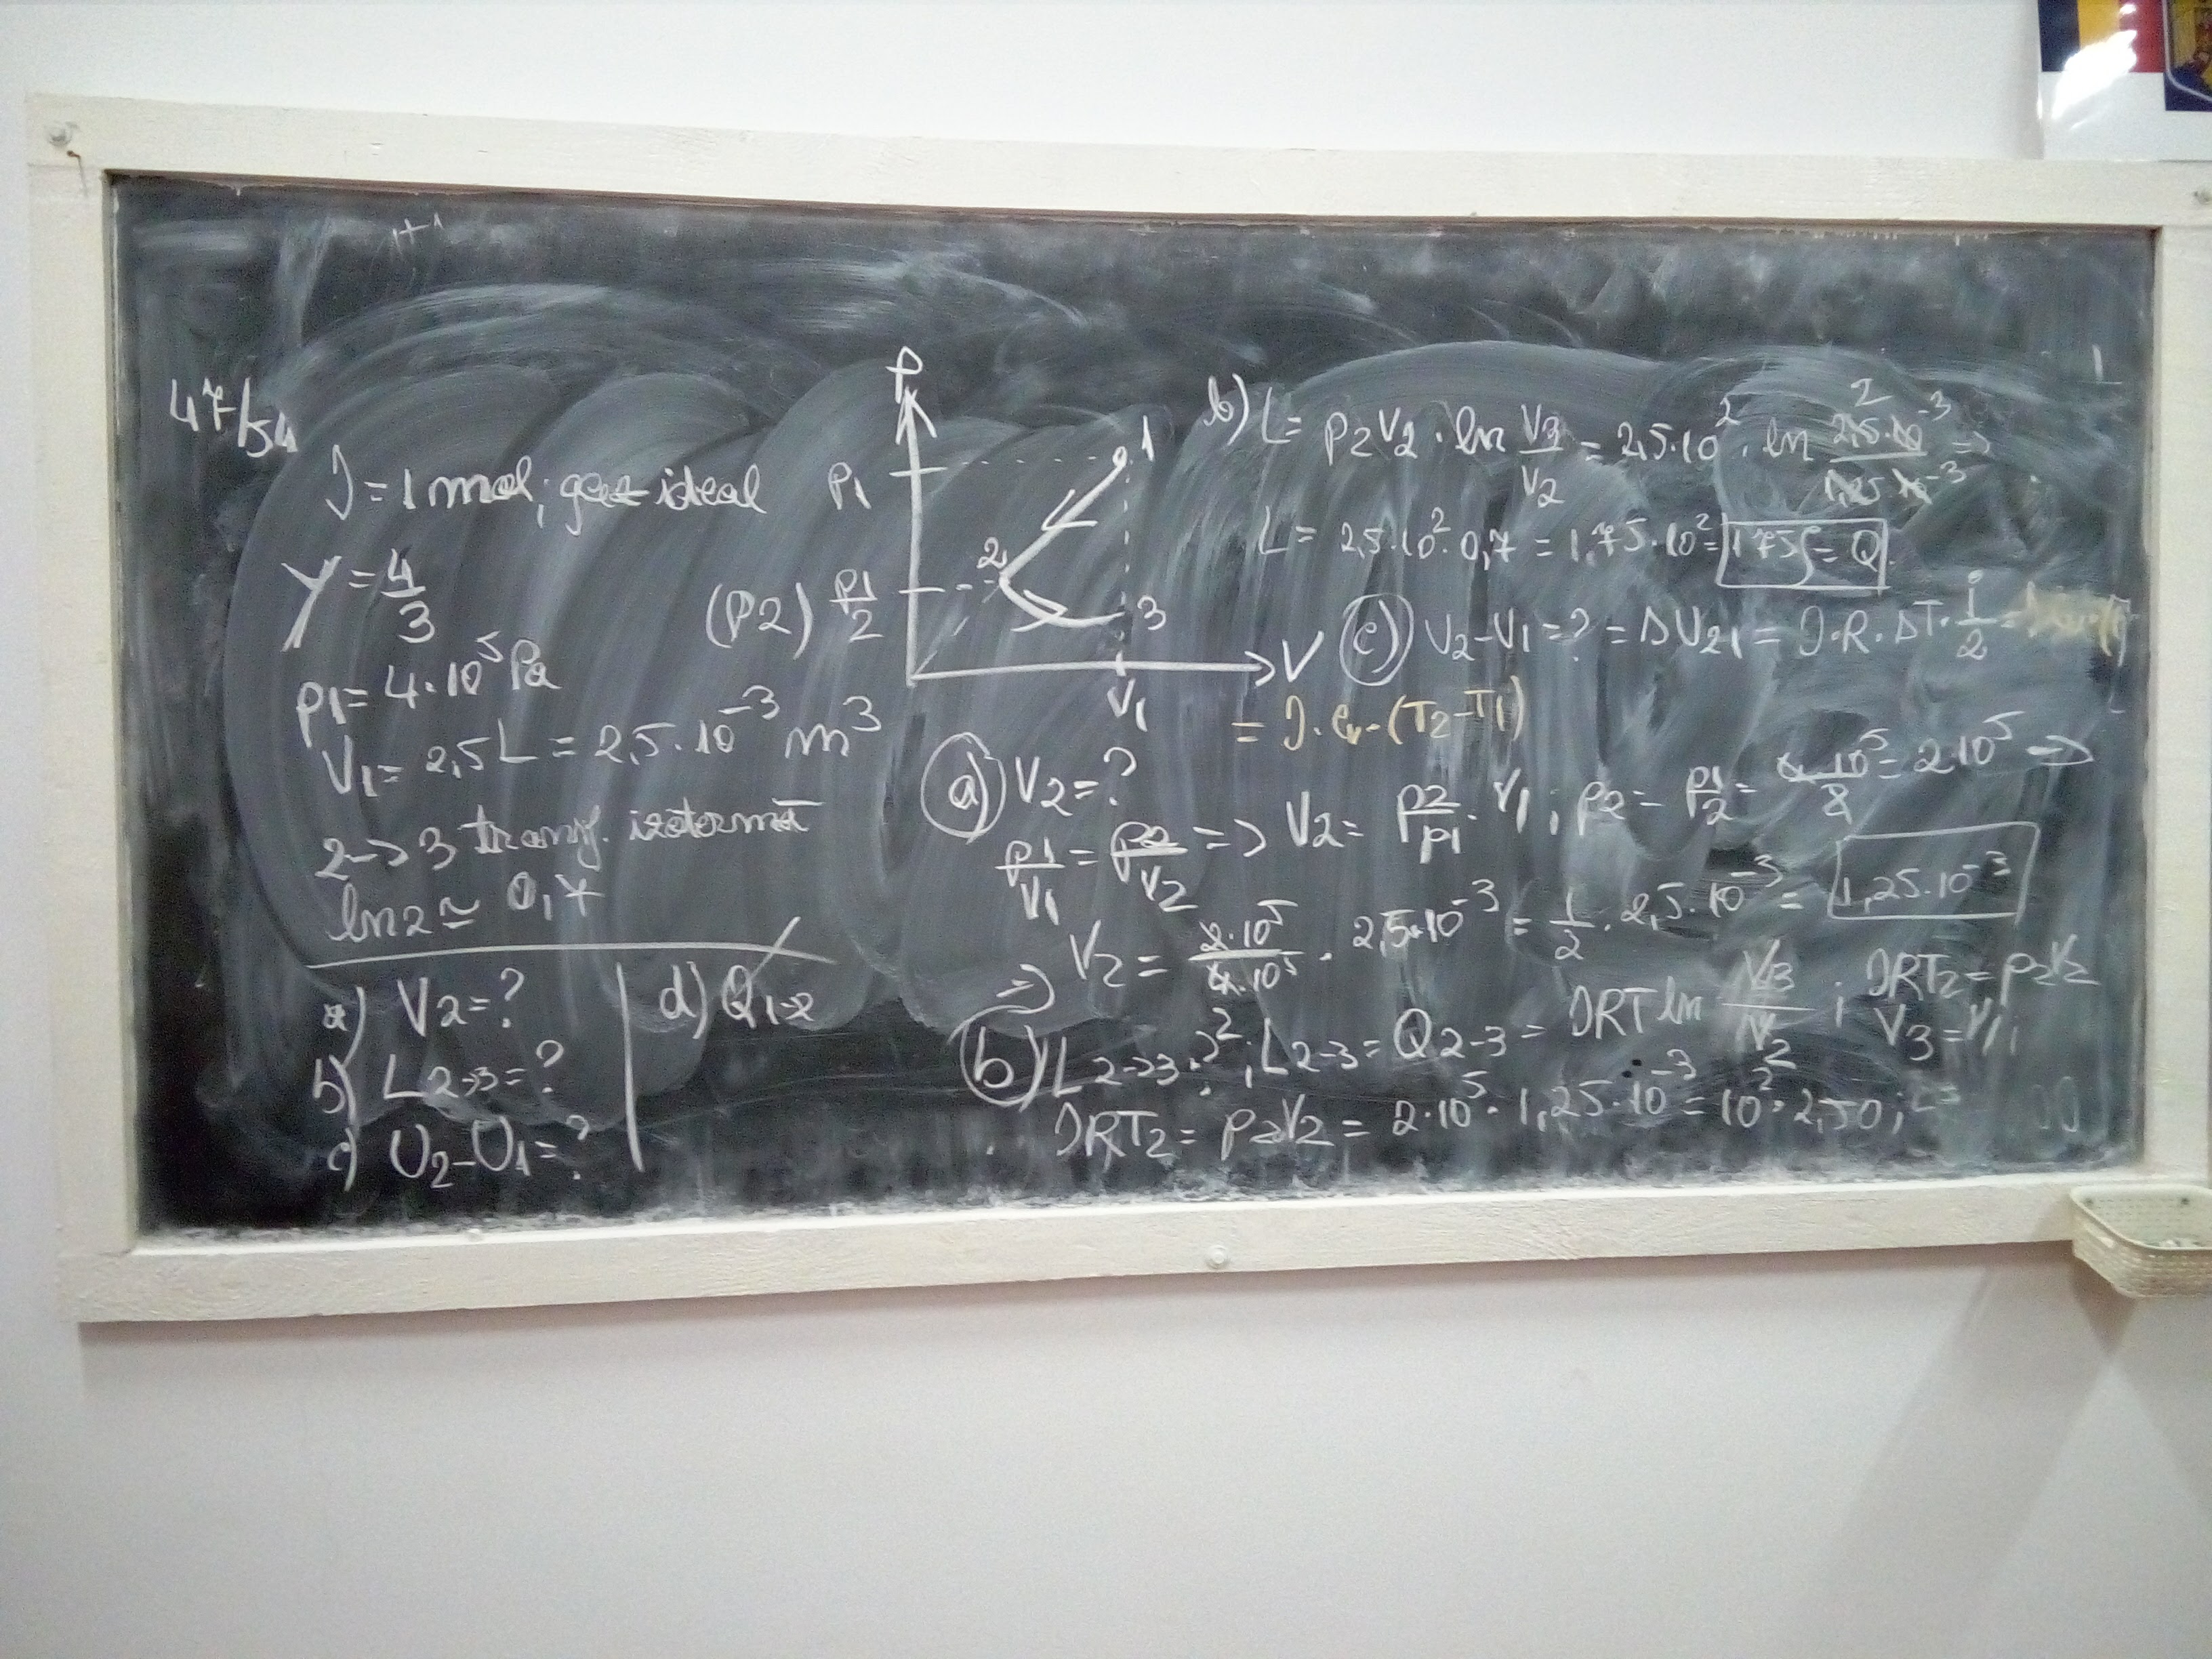 47/54
ν = 1 mol; gaz ideal
γ = 4/3
p1 = 4·10^5 Pa
V1 = 2,5 L = 2,5·10^-3 m^3
2→3 transf. izotermă
ln2 ≃ 0,7
a) V2=?
b) L2→3=?
c) U2-U1=?
d) Q1-2
P
P1
(P2) P1/2
1
2
3
V
V1
a) V2=?
p1/V1 = p2/V2 => V2 = p2/p1 · V1 ; p2 = p1/2 = 4·10^5/2 = 2·10^5 →
→ V2 = 2·10^5/4·10^5 · 2,5·10^-3 = 1/2 · 2,5·10^-3 = 1,25·10^-3
b) L2→3=?; L2-3 = Q2-3 = νRT ln V3/V2 ; νRT2 = p2V2
V3=V1;
νRT2 = p2V2 = 2·10^5·1,25·10^-3 = 10^2·2,50;
b) L = p2V2·ln V3/V2 = 2,5·10^2·ln 2,5·10^-3/1,25·10^-3 =>
2
L = 2,5·10^2·0,7 = 1,75·10^2 = 175J = Q
c) U2-U1=? = ΔU21 = ν·R·ΔT·i/2 =
= ν·Cv·(T2-T1)